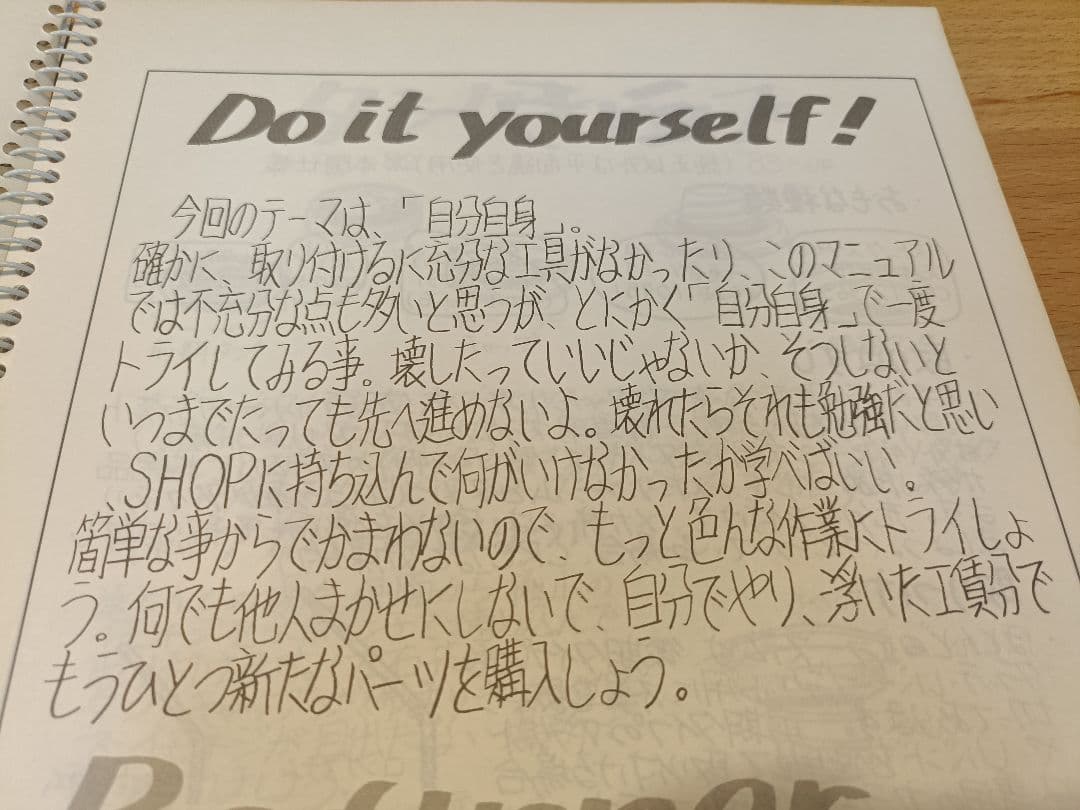 Do it yourself!
今回のテーマは、「自分自身」。
確かに、取り付けるに充分な工具がなかったり、このマニュアル
では不充分な点も多いと思うが、とにかく「自分自身」で一度
トライしてみる事。壊したっていいじゃないか、そうしないと
いつまでたっても先へ進めないよ。壊れたらそれも勉強だと思い
、SHOPに持ち込んで何がいけなかったか学べばいい。
簡単な事からでかまわないので、もっと色んな作業にトライしょ
う。何でも他人まかせにしないで、自分でやり、浮いた工賃分で
もうひとつ新たなパーツを購入しょう。